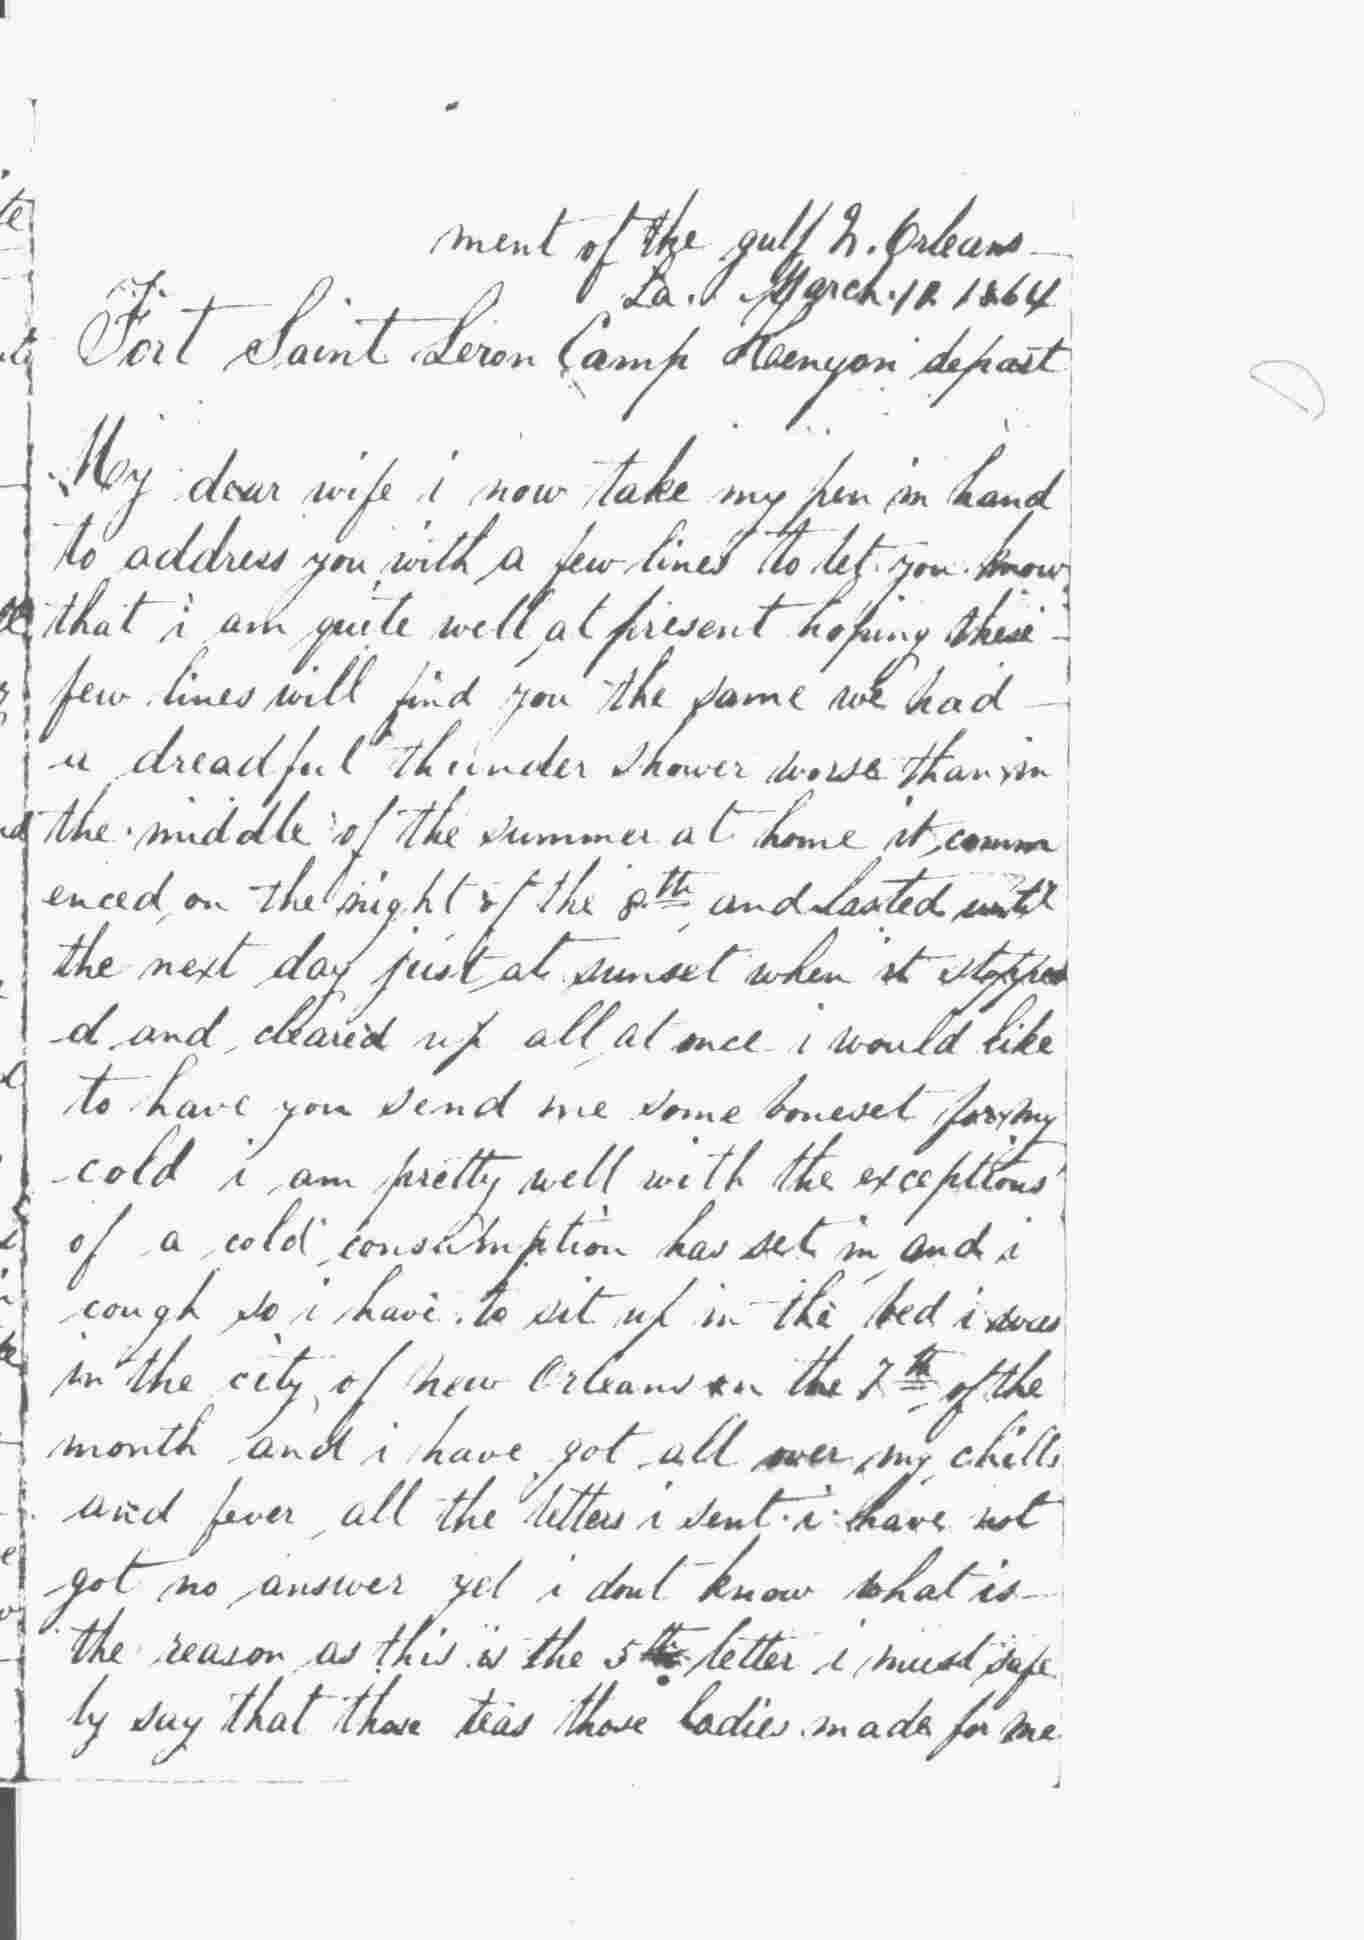 ment of the gulf N. Orleans
La. March 12 1864
Fort Saint Leron Camp depart
My dear wife i now take my pen in hand
to address you with a few lines to let you know
that i am quite well at present hoping these
few lines will find you the same we had
a dreadful thunder shower worse than in
the middle of the summer at home it comm
enced on the night of the 8th and lasted until
the next day just at sunset when it stoppe
d and cleared up all at once i would like
to have you send me some boneset for my
cold i am pretty well with the exceptions
of a cold consumption has set in and i
cough so i have to sit up in the bed i was
in the city of new Orleans on the 7th of the
month and i have got all over my chills
and fever all the letters i sent i have not
got no answer yet i dont know what is
the reason as this is the 5th letter i must safe
ly say that those teas those ladies made for me